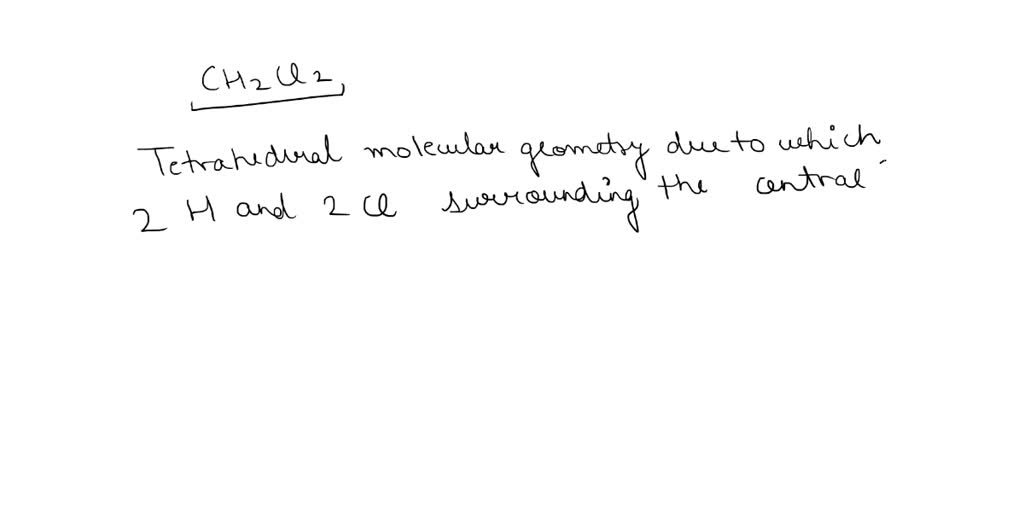 CH2Cl2,
Tetrahedral molecular geometry due to which
2 H and 2 Cl surrounding the central